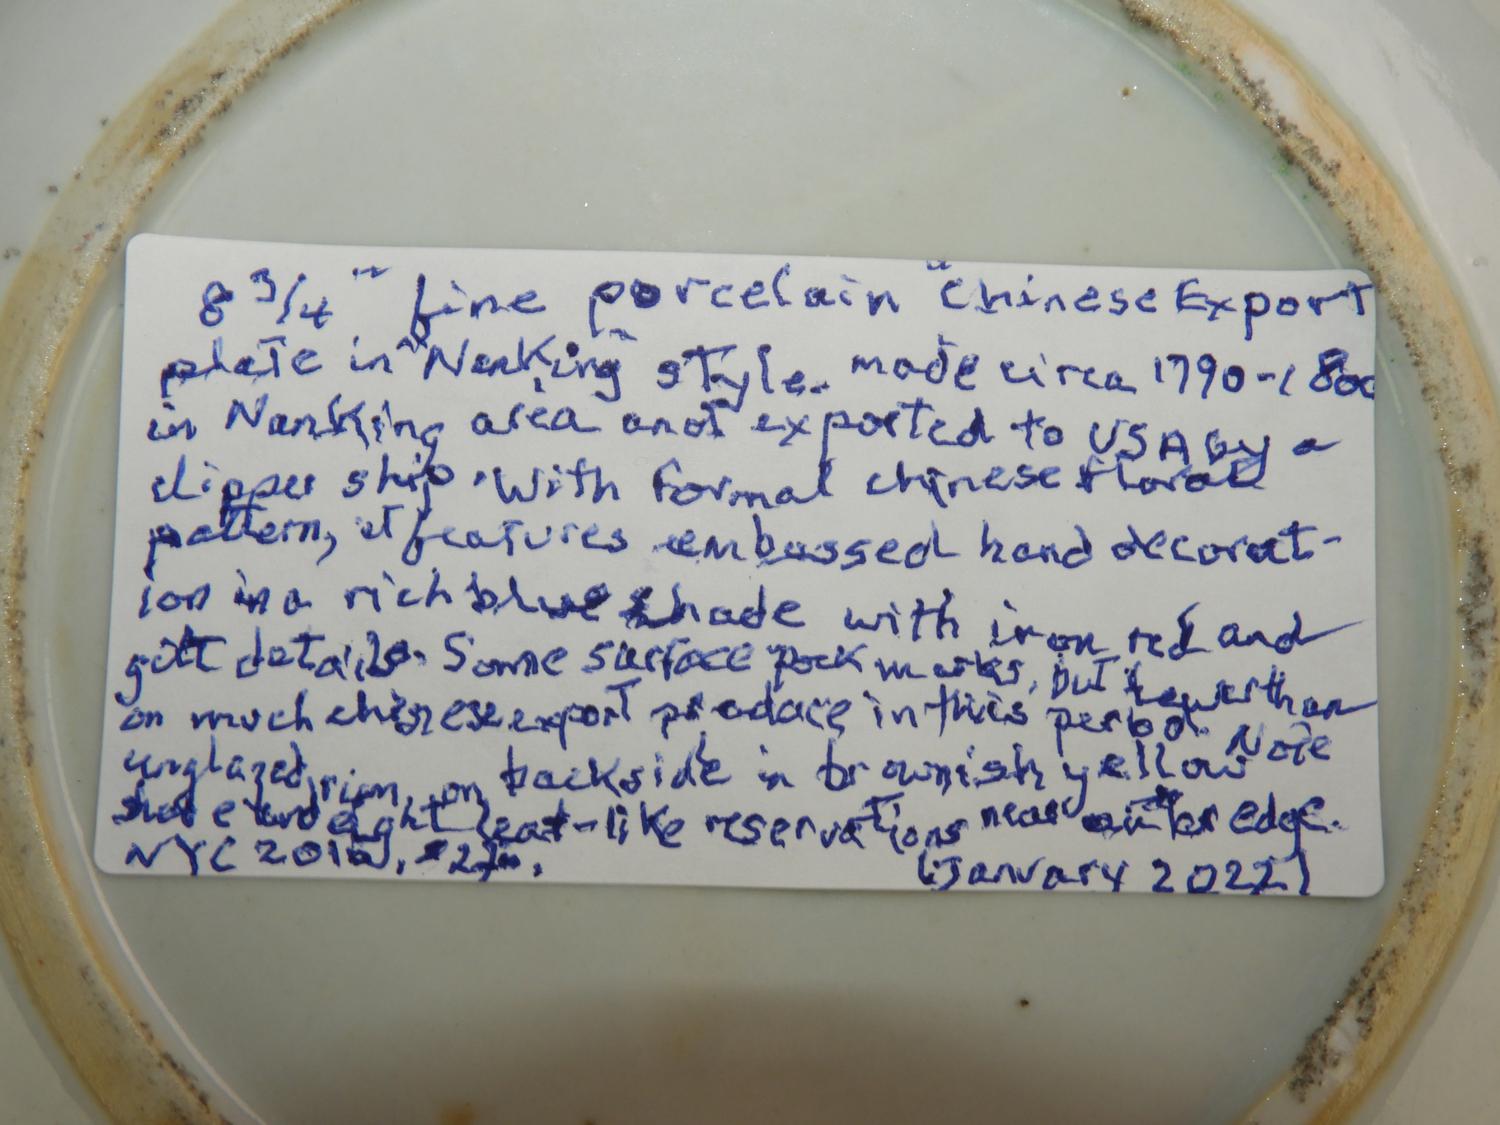 8 3/4" fine porcelain "Chinese Export
plate in "Nanking" style. made circa 1790-1800
in Nanking area and exported to USA by a
clipper ship. With formal chinese floral
pattern, it features embossed hand decorat-
ion in a rich blue shade with iron red and
gilt details. Some surface pock marks, but fewer than
on much chinese export produce in this period. Note
unglazed rim on backside in brownish yellow
shade and eight leaf-like reservations near outer edge.
NYC
(January 2022)